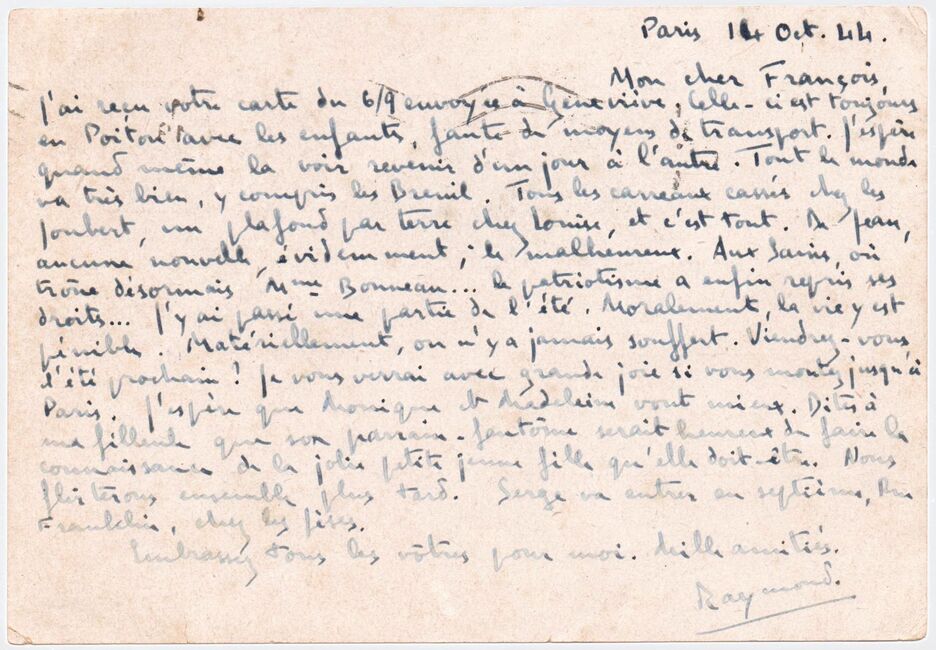 Paris 14 Oct. 44.
Mon cher François,
J'ai reçu votre carte du 6/9 envoyée à Geneviève, Celle-ci est toujours
en Poitou avec les enfants, faute de moyens de transport. J'espère
quand même la voir revenir d'un jour à l'autre. Tout le monde
va très bien, y compris les Breuil. Tous les carreaux cassés chez les
Joubert, un plafond par terre chez Louise, et c'est tout. De Jean,
aucune nouvelle, évidemment ; le malheureux. Aux Sains, où
trône désormais Mme Bonneau... le patriotisme a enfin repris ses
droits... J'y ai passé une partie de l'été. Moralement, la vie y est
pénible. Matériellement, on n'y a jamais souffert. Viendrez-vous
l'été prochain ? Je vous verrai avec grande joie si vous montez jusqu'à
Paris. J'espère que Monique et Madeleine vont mieux. Dites à
ma filleule que son parrain-fantôme serait heureux de faire la
connaissance de la jolie petite jeune fille qu'elle doit-être. Nous
flirterons ensemble plus tard. Serge va entrer en septième, Rue
Franklin, chez les pères.
Embrassez tous les vôtres pour moi. Mille amitiés.
Raymond.